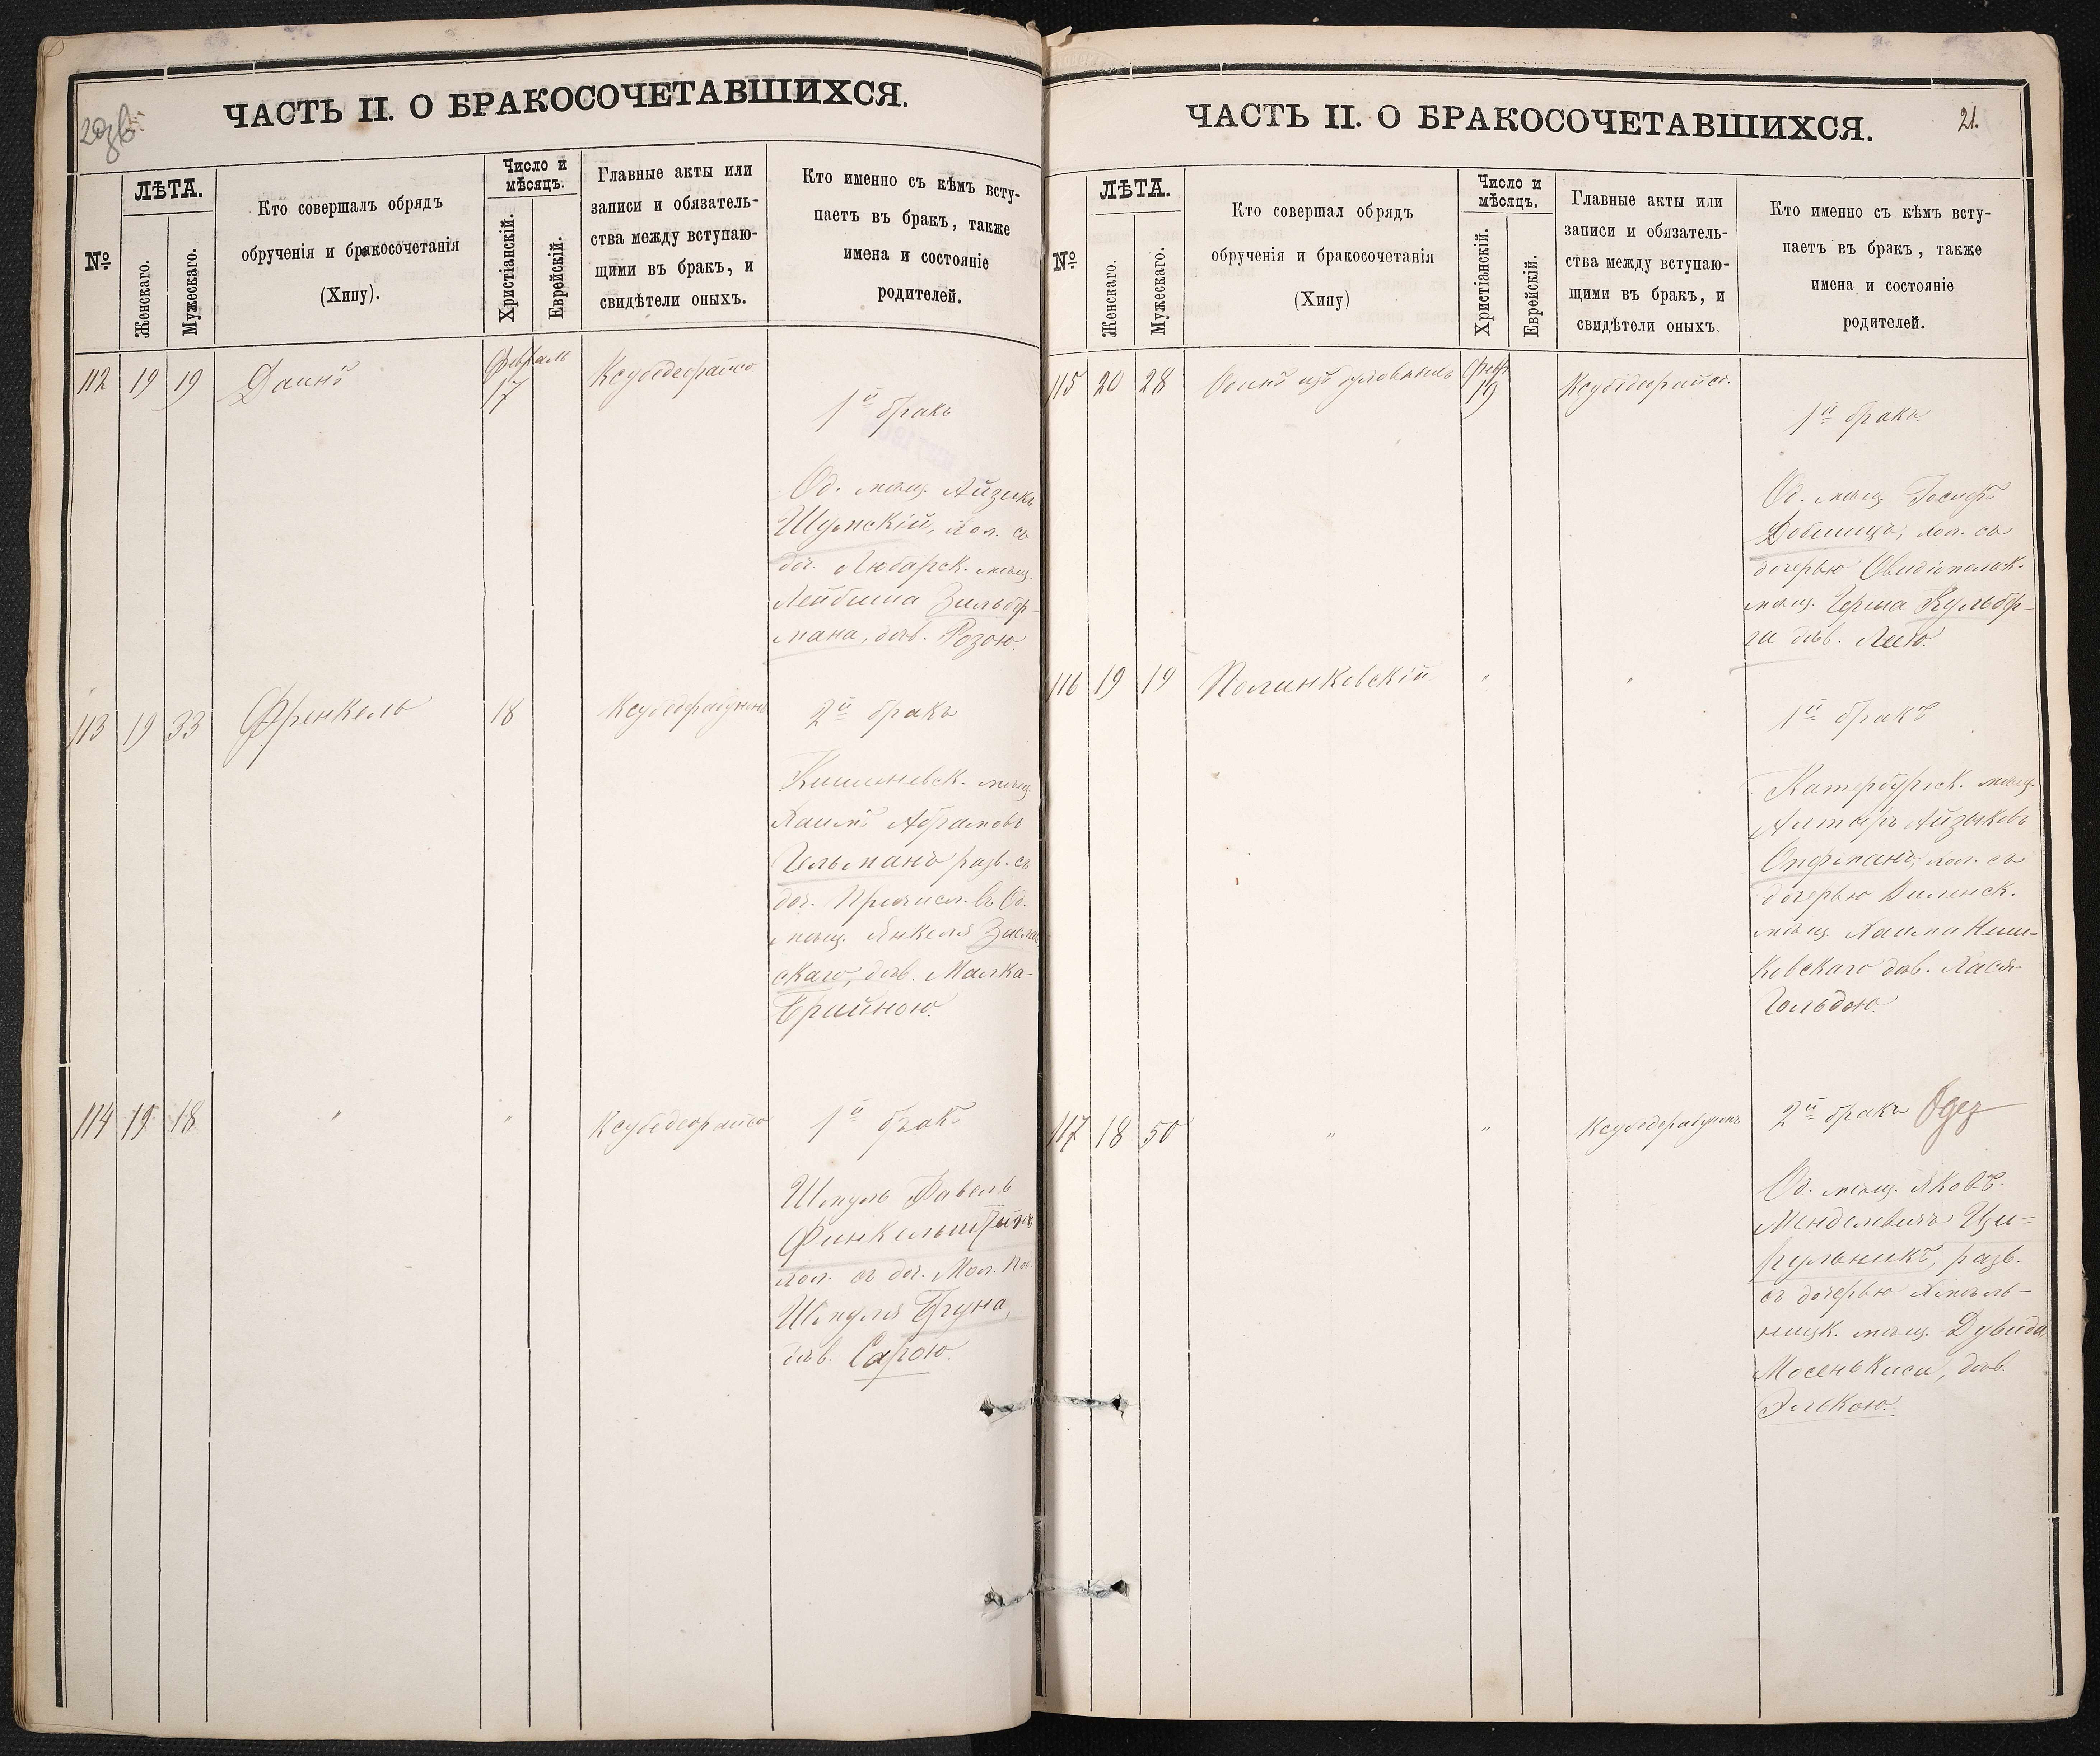 ЧАСТЬ II. О БРАКОСОЧЕТАВШИХСЯ.
№
ЛѢТА.
Женскаго.
Мужескаго.
Кто совершалъ обрядъ
обрученія и бракосочетанія
(Хипу).
Число и
мѣсяцъ.
Христіанскій.
Еврейскій.
Главные акты или
записи и обязатель-
ства между вступаю-
щими въ бракъ, и
свидѣтели оныхъ.
Кто именно съ кѣмъ всту-
паетъ въ бракъ, также
имена и состояніе
родителей.
112 19 19 Даинъ Февраль 17 Ксубедеорайсо
1й бракъ
Од. мѣщ. Айзикъ
Шумскій, хол. съ
доч. Любарск. мѣщ.
Лейбиша Зильбер-
мана, дѣв. Розою.
113 19 33 Френкель 18
2й бракъ
Кишиневск. мѣщ.
Хаимъ Абрамовъ
Гельманъ разв. съ
доч. Причисл. въ Од.
мѣщ. Янкеля
скаго, дѣв. Малка-
Брайною.
114 19 18 " " Ксубедеорайсо
1й бракъ
Шмуль Фавель
Финкельштейнъ
хол. съ доч. Мол.
Шмуля Бруна,
дѣв. Сарою.
ЧАСТЬ II. О БРАКОСОЧЕТАВШИХСЯ.
21.
№
ЛѢТА.
Женскаго.
Мужескаго.
Кто совершал обрядъ
обрученія и бракосочетанія
(Хипу)
Число и
мѣсяцъ.
Христіанскій.
Еврейскій.
Главные акты или
записи и обязатель-
ства между вступаю-
щими въ бракъ, и
свидѣтели оныхъ.
Кто именно съ кѣмъ всту-
паетъ въ бракъ, также
имена и состояніе
родителей.
115 20 28 Одинъ изъ духовныхъ Февр 19 Ксубідеорайсо.
1й бракъ.
Од. мѣщ. Іосифъ
хол. съ
дочерью Овидіопольск.
мѣщ. Герша Кульбер-
га дѣв. Леею.
116 19 19 Полинковскій " "
1й бракъ
Катербургск. мѣщ.
Алтеръ Айзыковъ
хол. съ
дочерью Виленск.
мѣщ. Хаима Ниш-
ковскаго дѣв. Хася-
Гольдою.
117 18 50 " "
2й бракъ
Од. мѣщ. Яковъ
Менделевичъ Ци-
рульникъ, разв.
съ дочерью Хмѣль-
ницк. мѣщ. Дувида
Мосенькиса, дѣв.
Элекою.